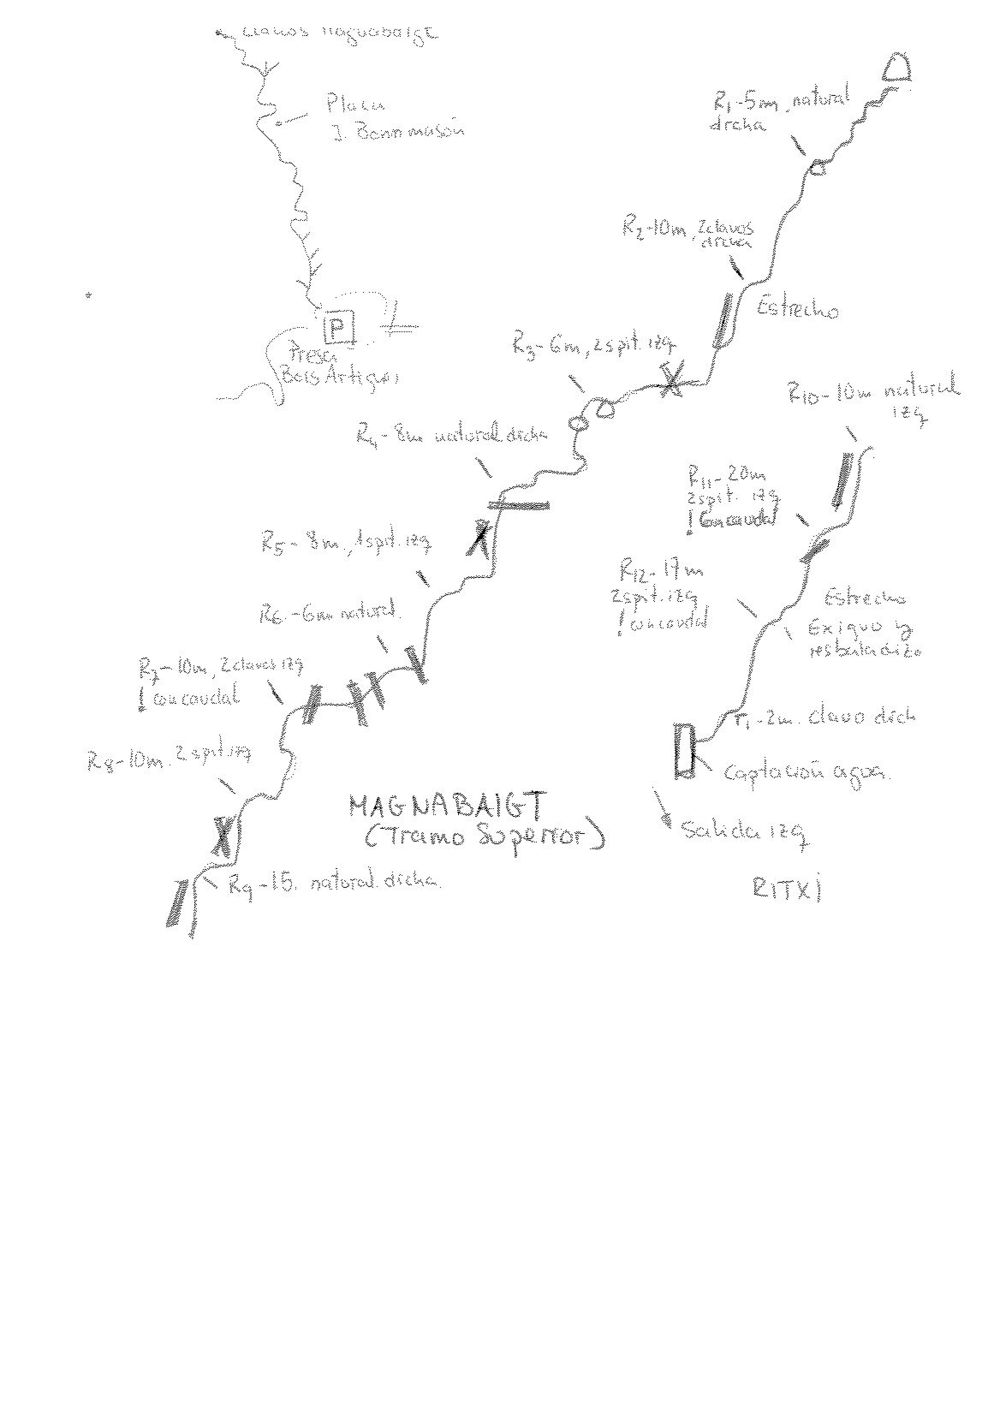 Llanos Magnabaigt
Placa
J. Bonnmasón
P
Presa
Bois Artigues
R1-5m, natural
drcha
R2-10m, 2clavos
drcha
Estrecho
R3-6m, 2spit. izq
R4-8m natural drcha
R5-8m., 1spit. izq
R6-6m natural.
R7-10m, 2clavos izq
! con caudal
R8-10m. 2spit. izq
R9-15. natural. drcha.
MAGNABAIGT
(Tramo Superior)
R10-10m natural
izq
R11-20m
2spit. izq
! Con caudal
R12-17m
2spit. izq
! con caudal
Estrecho
Exiguo y
resbaladizo
r1-2m. clavo drch
Captación agua.
Salida izq
RITXI